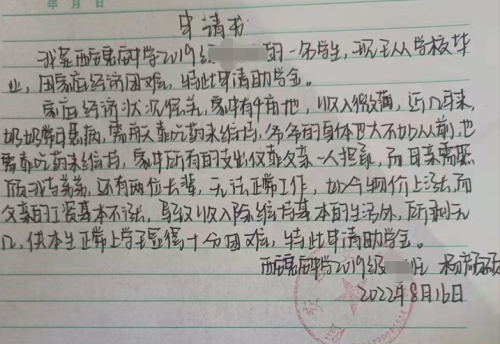 年 月 日
申请书
我是西 中学2019级 的一名学生,现已从学校毕
业,因家庭经济困难,特此申请助学金。
家庭经济状况很差,家中有4亩地,收入很微薄,近几年来,
奶奶常日患病,需每天靠吃药来维持,爷爷的身体也大不如从前,也
需靠吃药来维持,家中所有的支出仅靠父亲一人担负,而母亲需照
顾我与弟弟,还有两位长辈,无法正常工作,如今物价上涨,而
父亲的工资基本不涨,导致收入除维持基本的生活外,所剩无
几,供本生正常上学显得十分困难,特此申请助学金。
西 中学2019级 杨
2022年8月16日